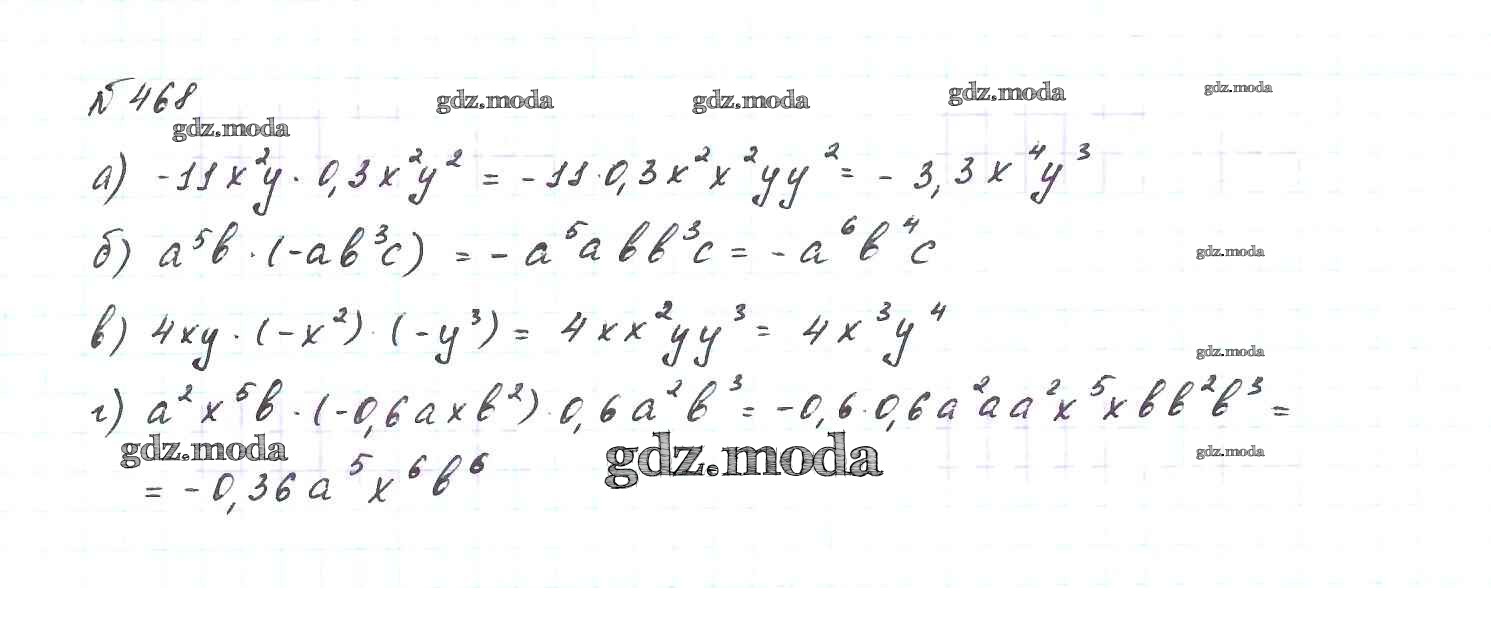 № 468
gdz.moda gdz.moda gdz.moda gdz.moda
gdz.moda
а) -11x²y · 0,3x²y² = -11·0,3x²x²yy² = -3,3x⁴y³
б) a⁵b · (-ab³c) = -a⁵abb³c = -a⁶b⁴c
gdz.moda
в) 4xy · (-x²) · (-y³) = 4xx²yy³ = 4x³y⁴
gdz.moda
г) a²x⁵b · (-0,6axb²) · 0,6a²b³ = -0,6·0,6a²aa²x⁵xbb²b³ =
gdz.moda gdz.moda gdz.moda
= -0,36a⁵x⁶b⁶